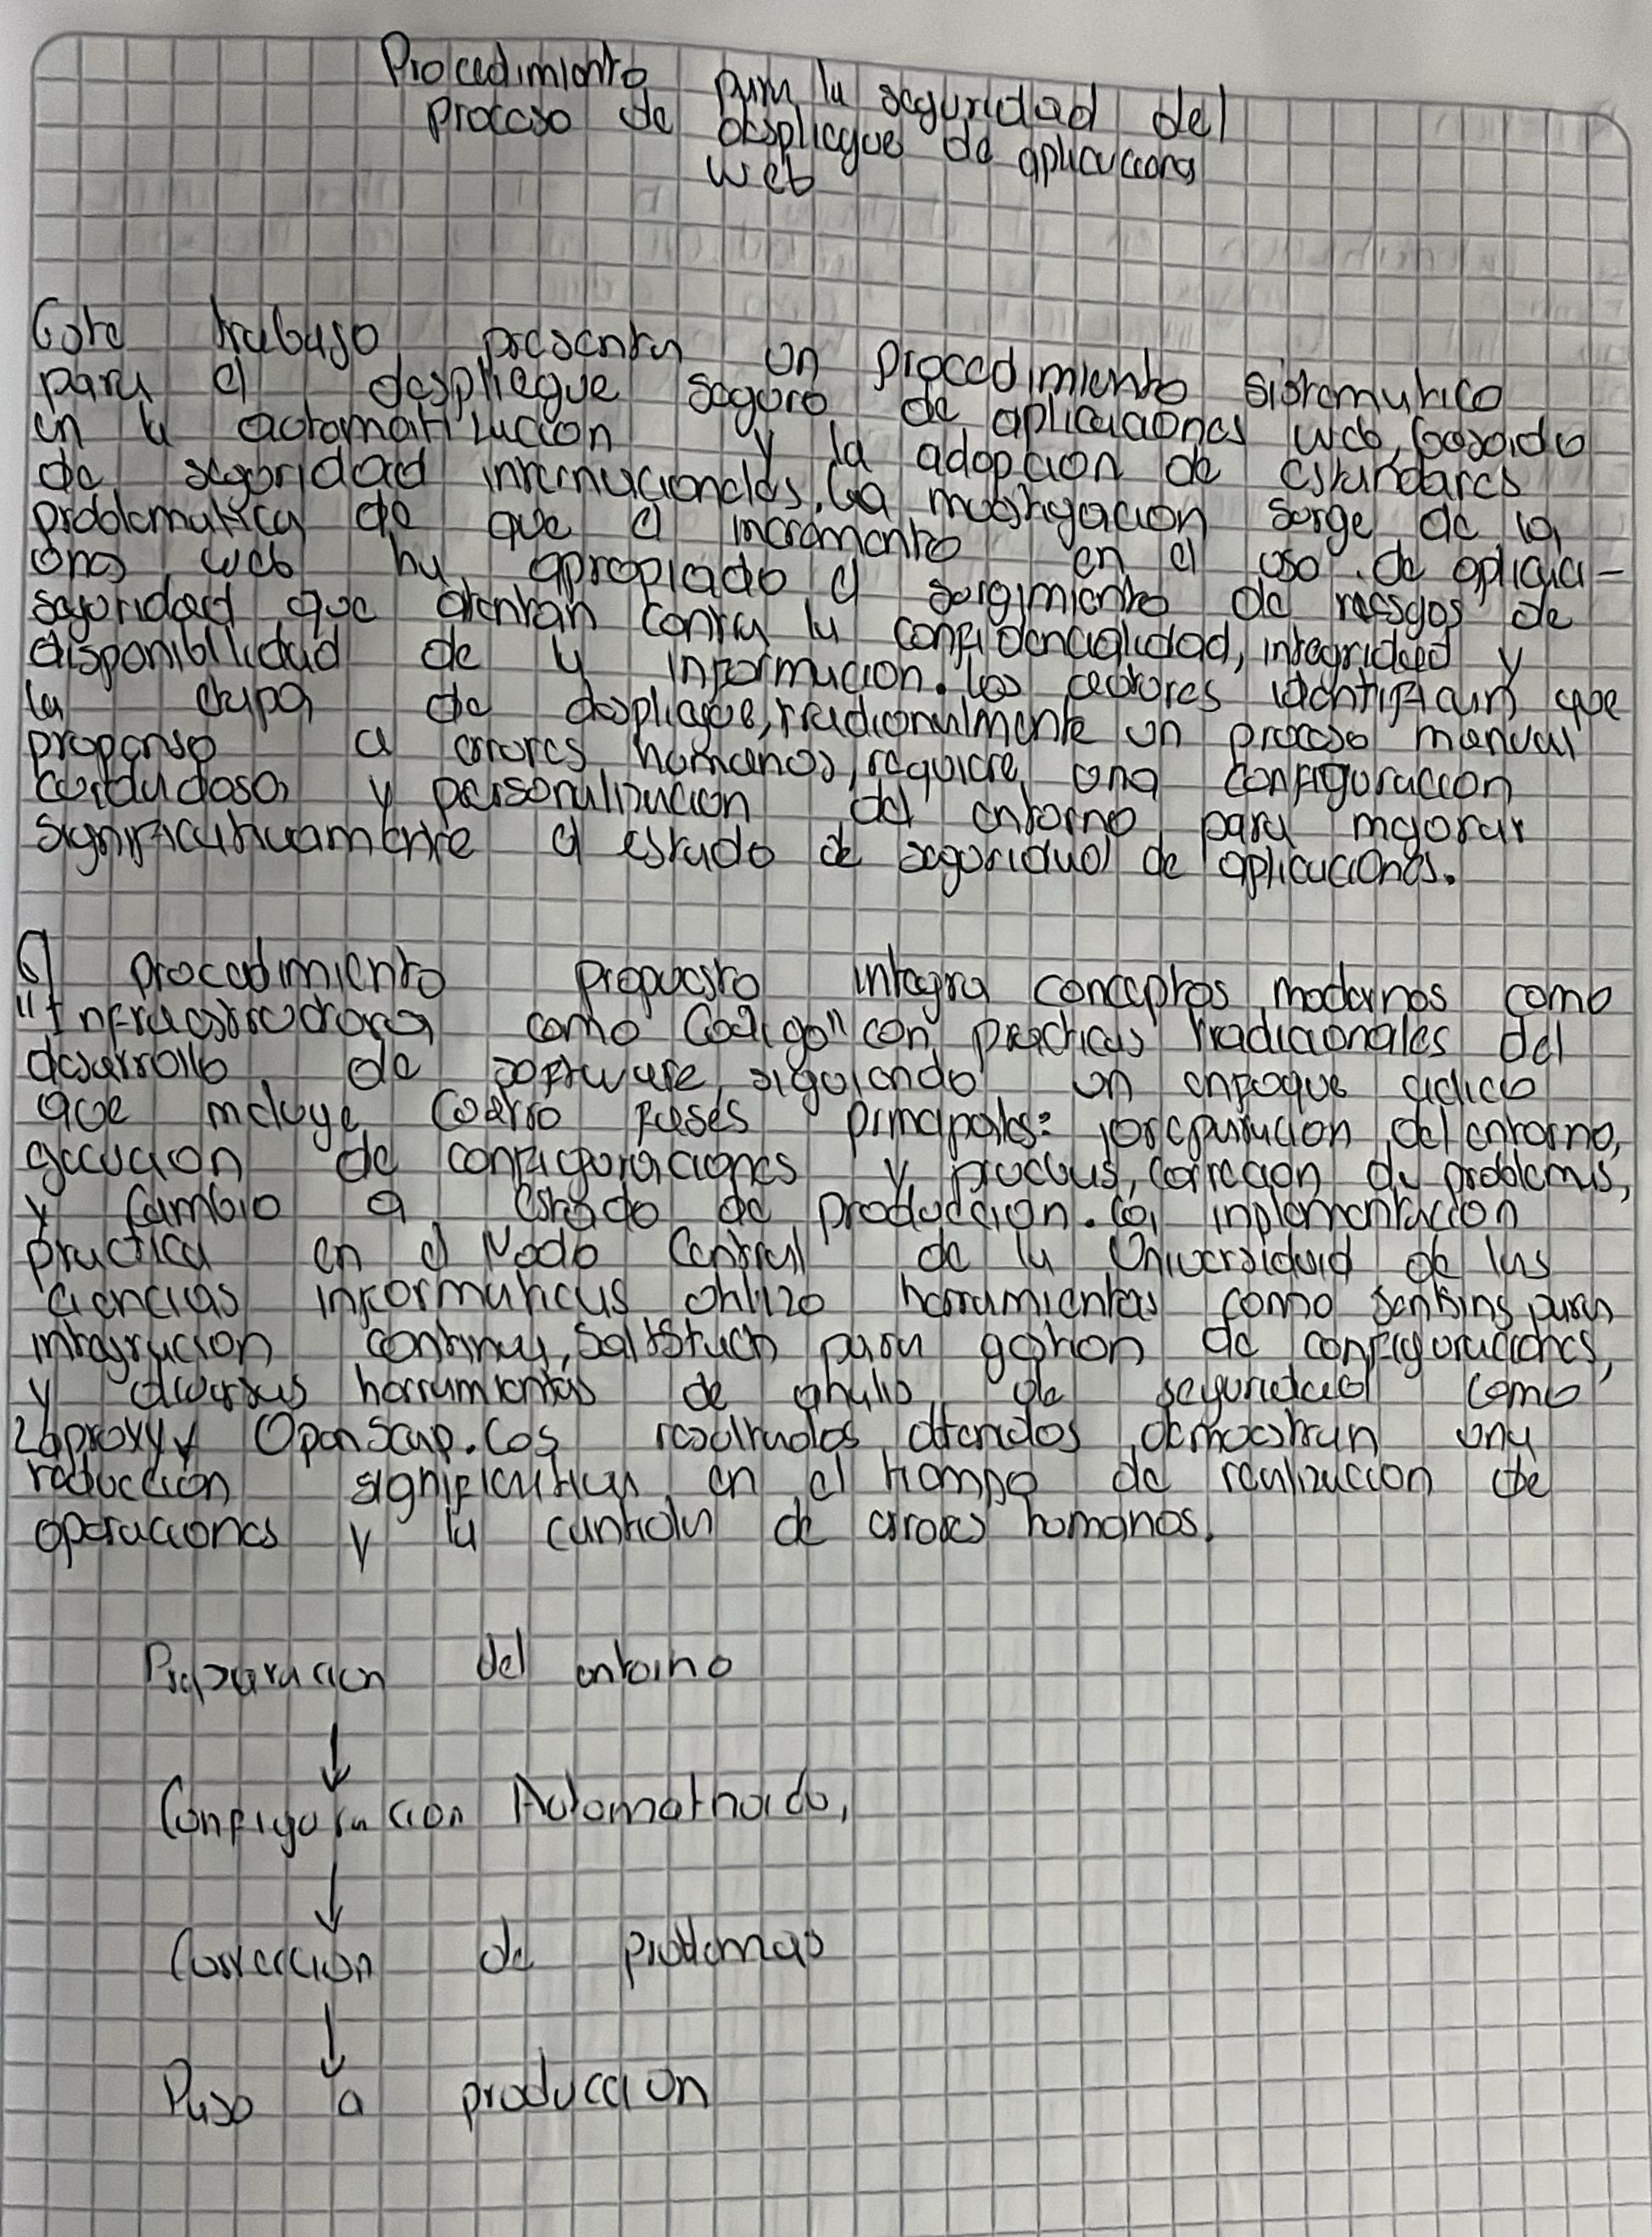 Procedimiento para la seguridad del
proceso de despliegue de aplicaciones
web
Este trabajo presenta un procedimiento sistematico
para el despliegue seguro de aplicaciones web, basado
en la automatizacion y la adopcion de estandares
de seguridad internacionales. La investigacion surge de la
problematica de que el incremento en el uso de aplicaci-
ones web ha apropiado el surgimiento de riesgos de
seguridad que atentan contra la confidencialidad, integridad y
disponibilidad de la informacion. Los autores identifican que
la etapa de despliegue, tradicionalmente un proceso manual
propenso a errores humanos, requiere una configuracion
cuidadosa y personalizacion del entorno para mejorar
significativamente el estado de seguridad de aplicaciones.
El procedimiento propuesto integra conceptos modernos como
"Infraestructura como Codigo" con practicas tradicionales del
desarrollo de software, siguiendo un enfoque ciclico
que incluye cuatro fases principales: preparacion del entorno,
ejecucion de configuraciones y pruebas, correcion de problemas,
y cambio a estado de produccion. La inplementacion
practica en el Nodo Central de la Universidad de las
ciencias informaticas utilizo herramientas como Jenkins para
integracion continua, SaltStack para gestion de configuraciones,
y diversas herramientas de de seguridad como
Zaproxy y OpenScap. Los resultados demuestran una
reduccion significativa en el tiempo de realizacion de
operaciones y la de errores humanos.
Preparacion del entorno
↓
Configuracion Automatizada,
↓
Correccion de problemas
↓
Paso a produccion